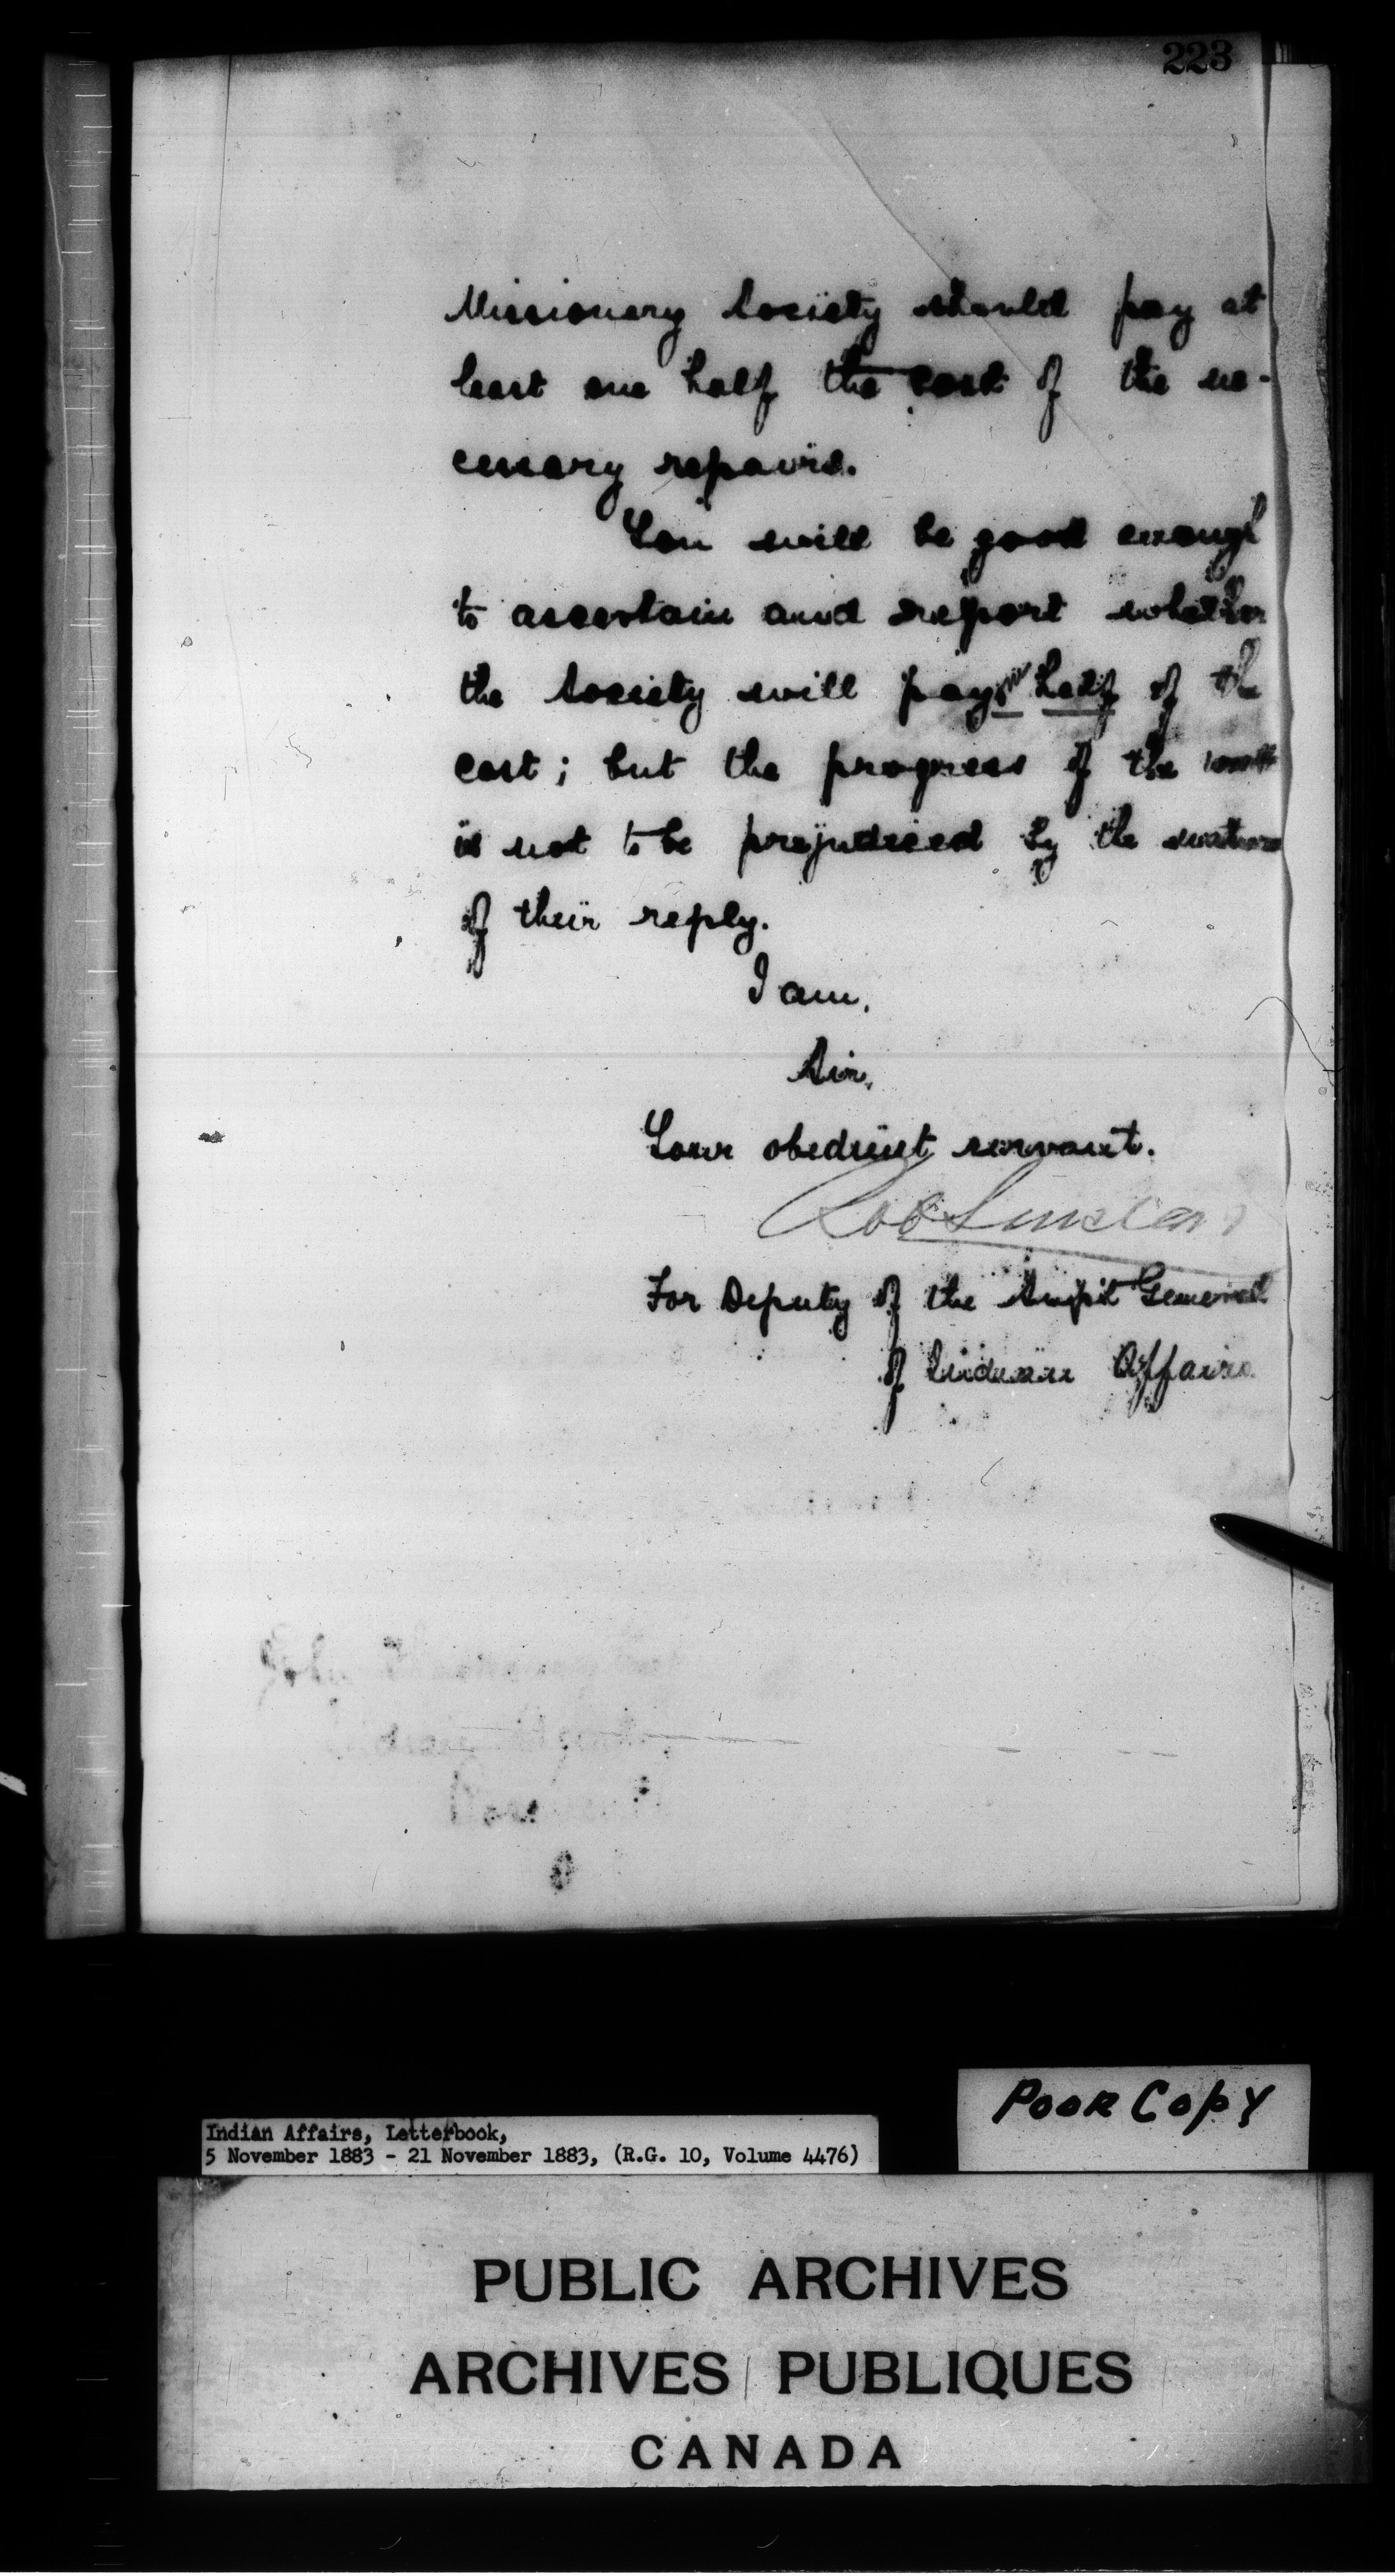 223
Missionary Society should pay at
least one half the cost of the ne-
cessary repairs.
You will be good enough
to ascertain and report whether
the Society will pay one half of the
cost; but the progress of the work
is not to be prejudiced by the nature
of their reply.
I am,
Sir,
Your obedient servant.
Rob Sinclair
For Deputy of the Supt General
of Indian Affairs.
POOR COPY
Indian Affairs, Letterbook,
5 November 1883 - 21 November 1883, (R.G. 10, Volume 4476)
PUBLIC ARCHIVES
ARCHIVES PUBLIQUES
CANADA